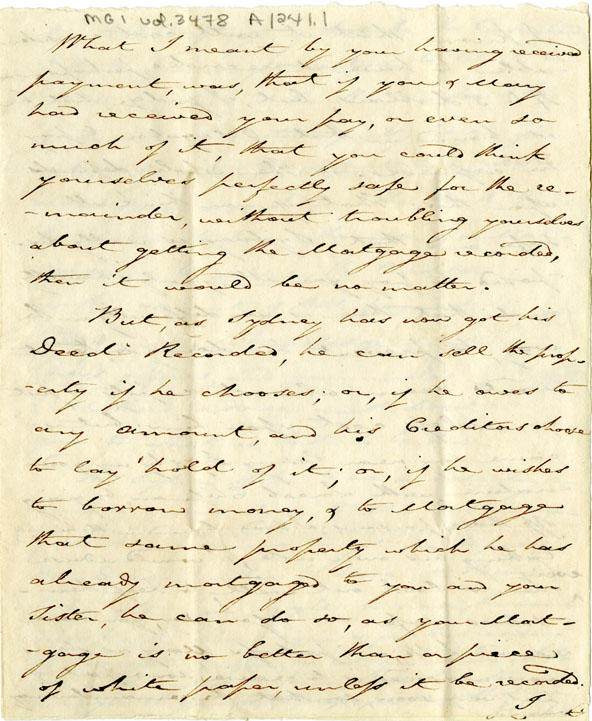 MG1 vol. 3478 A/241.1
What I meant by your having received
payment, was, that if you & Mary
had received your pay, or even so
much of it, that you could think
yourselves perfectly safe for the re-
-mainder, without troubling yourselves
about getting the Mortgage recorded,
then it would be no matter.
But, as Sydney has now got his
Deed Recorded, he can sell the prop-
-erty if he chooses; or, if he owes to
any amount, and his Creditors choose
to lay hold of it; or, if he wishes
to borrow money, & to Mortgage
that same property which he has
already mortgaged to you and your
Sister, he can do so, as your Mort-
-gage is no better than a piece
of white paper, unless it be recorded.
I